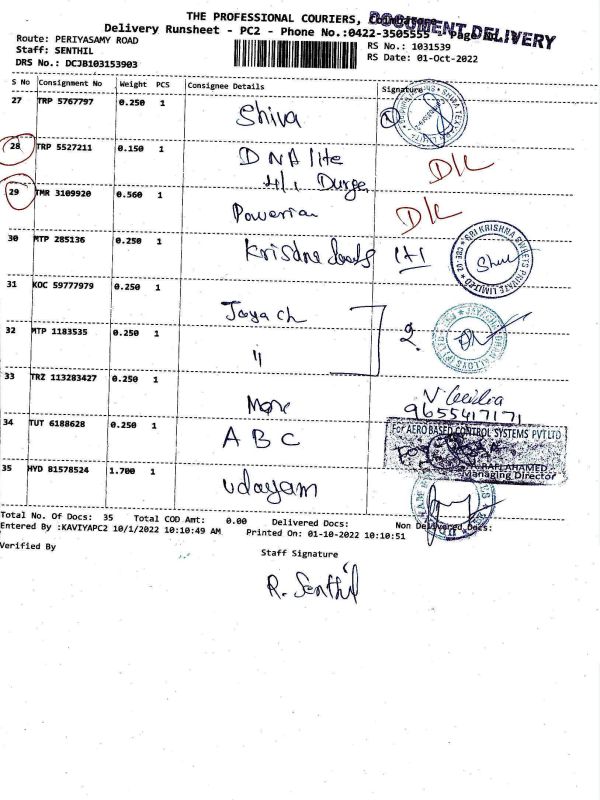 THE PROFESSIONAL COURIERS,
DOCUMENT DELIVERY
Delivery Runsheet - PC2 - Phone No.:0422-3505555
Route: PERIYASAMY ROAD
RS No.: 1031539
Staff: SENTHIL
RS Date: 01-Oct-2022
DRS No.: DCJB103153903
S No Consignment No Weight PCS Consignee Details Signature
27 TRP 5767797 0.250 1 Shiva
28 TRP 5527211 0.150 1 DNA lite D/L
H/i Durga
29 TMR 3109920 0.560 1 D/L
30 MTP 285136 0.250 1 1+1 SRI KRISHNA SWEETS PRIVATE LIMITED
31 KOC 59777979 0.250 1 Jaya ch
32 MTP 1183535 0.250 1 11 2.
33 TRZ 113283427 0.250 1 More
9655417171
34 TUT 6188628 0.250 1 ABC For AERO BASED CONTROL SYSTEMS PVT LTD
Managing Director
35 HYD 81578524 1.700 1 udayam
Total No. Of Docs: 35 Total COD Amt: 0.00 Delivered Docs: Non Delivered Docs:
Entered By :KAVIYAPC2 10/1/2022 10:10:49 AM Printed On: 01-10-2022 10:10:51
Verified By
Staff Signature
R. Senthil